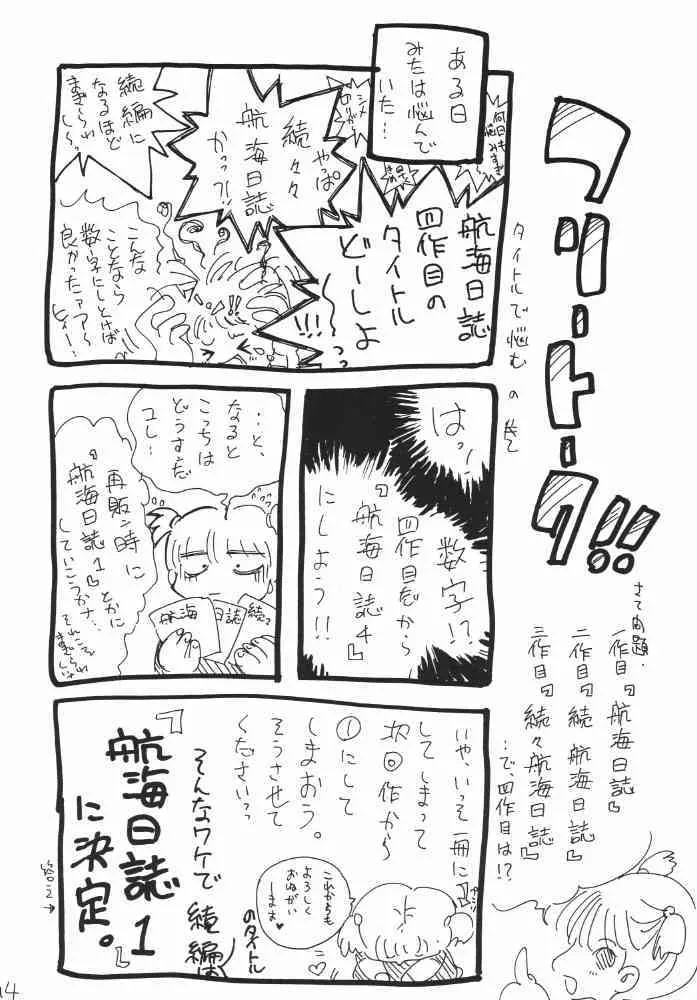 フリートーク!!
タイトルで悩む の巻
さて問題・
一作目『航海日誌』
二作目『続 航海日誌』
三作目『続々航海日誌』
…で、四作目は!?
ある日
みたは悩んで
いた…
何日も
悩みすぎ
航海日誌
四作目の
タイトル
どーしよ
〜!!!
やっぱ
続々々
航海日誌
かっ?!
続編に
なるほど
まぎらわ
し〜
こんな
ことなら
数字にしとけば
良かったァァ〜
ヒィー…
はっ!
数字!?
四作目だから
『航海日誌4』
にしよう!!
…と、
なると
こっちは
どうすんだ
コレ…
航海
日誌
続
再販の時に
『航海日誌1』とかに
していこうかナ…
それこそ
まぎらわしいか
いや、いっそ一冊に
してしまって
次回作から
①にして
しまおう。
そうさせて
くださいっ
これからも
よろしく
おねがい
しまーす♥
そんなワケで 続編
のタイトルは
『航海日誌1』
に決定。
答え→
14